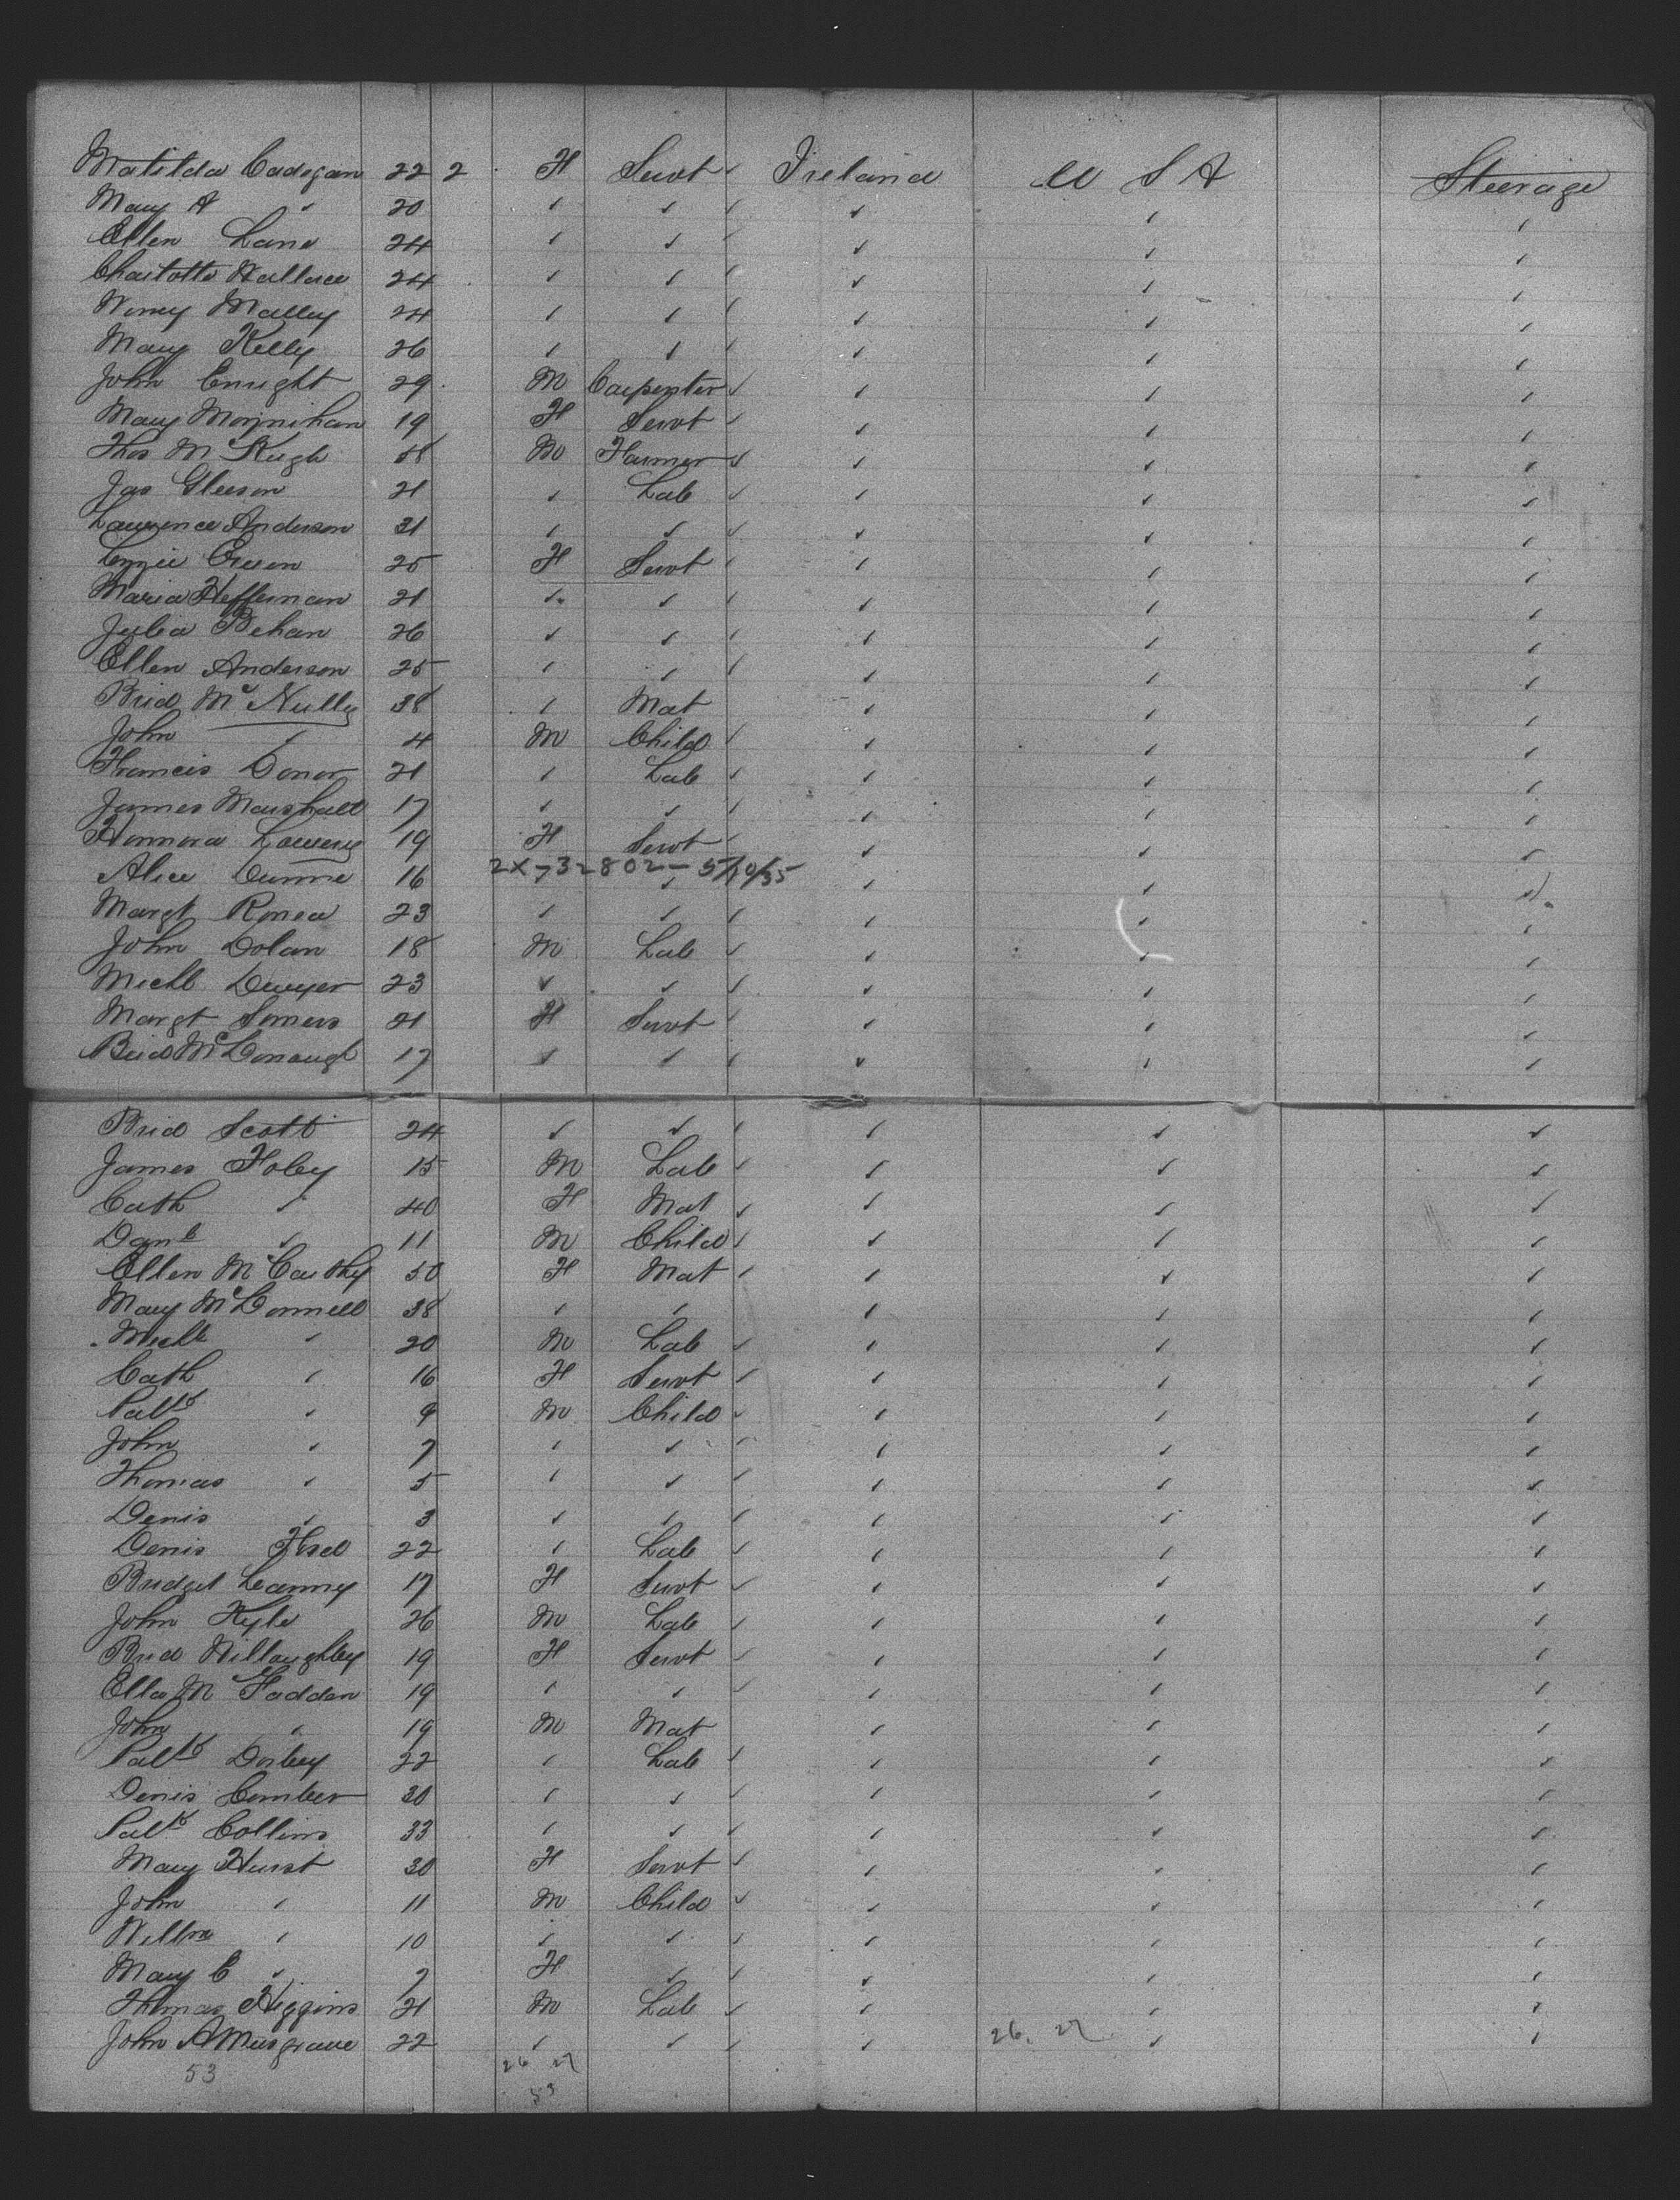 Matilda Cadogan 22 2 F Servt ✓ Ireland U S A Steerage
Mary A " 20 " " " " " "
Ellen Lane 24 " " " " " "
Charlotte Wallace 24 " " " " " "
Malley 24 " " " " " "
Mary Kelly 26 " " " " " "
John Enright 29 M Carpenter ✓ " " "
Mary Moynihan 19 F Servt ✓ " " "
Thos McKugh M Farmer ✓ " " "
Jas Gleeson 21 " Lab ✓ " " "
Lawrence Anderson 31 " " ✓ " " "
Lizzie Green 25 F Servt " " " "
Maria Heffernan 21 " " " " " "
Julia Behan 26 " " " " " "
Ellen Anderson 25 " " " " " "
Brid McNulty 38 " Mat " " "
John " 4 M Child " " " "
Francis Donor 21 " Lab ✓ " " "
James Marshall 17 " " " " " "
Honnora Lowery 19 F Servt " " " "
Alice Dunne 16 2X-32802-5/10/35 " " " "
Margt 23 " " " " " "
John Dolan 18 M Lab ✓ " " "
Michl Dwyer 23 " " ✓ " " "
Margt Somers 21 F Servt " " " "
Brid McDonaugh 17 " " " " " "
Brid Scott 24 " " " " " "
James Foley 15 M Lab ✓ " " "
Cath " 40 F Mat ✓ " " "
Danl " 11 M Child ✓ " " "
Ellen McCarthy 50 F Mat " " " "
Mary McDonnell 38 " " " " "
Michl " 20 M Lab ✓ " " "
Cath " 16 F Servt ✓ " " "
Patk " 9 M Child ✓ " " "
John " 7 " " ✓ " " "
Thomas " 5 " " ✓ " " "
Denis " 3 " " ✓ " " "
Denis 22 " Lab ✓ " " "
Bridget Leanny 17 F Servt ✓ " " "
John Kyle 26 M Lab ✓ " " "
Brid Willoughby 19 F Servt ✓ " " "
Ella McFadden 19 " " ✓ " " "
John " 19 M Mat " " "
Patk 22 " Lab ✓ " " "
Denis Comber 30 " " ✓ " " "
Patk Collins 33 " " ✓ " " "
Mary Hurst 30 F Servt ✓ " " "
John " 11 M Child ✓ " " "
Willm " 10 " " ✓ " " "
Mary C " 7 F " ✓ " " "
Thomas Higgins 21 M Lab ✓ " " "
John A Musgrave 22 " " ✓ " 26. 27 " "
53 26 27
53